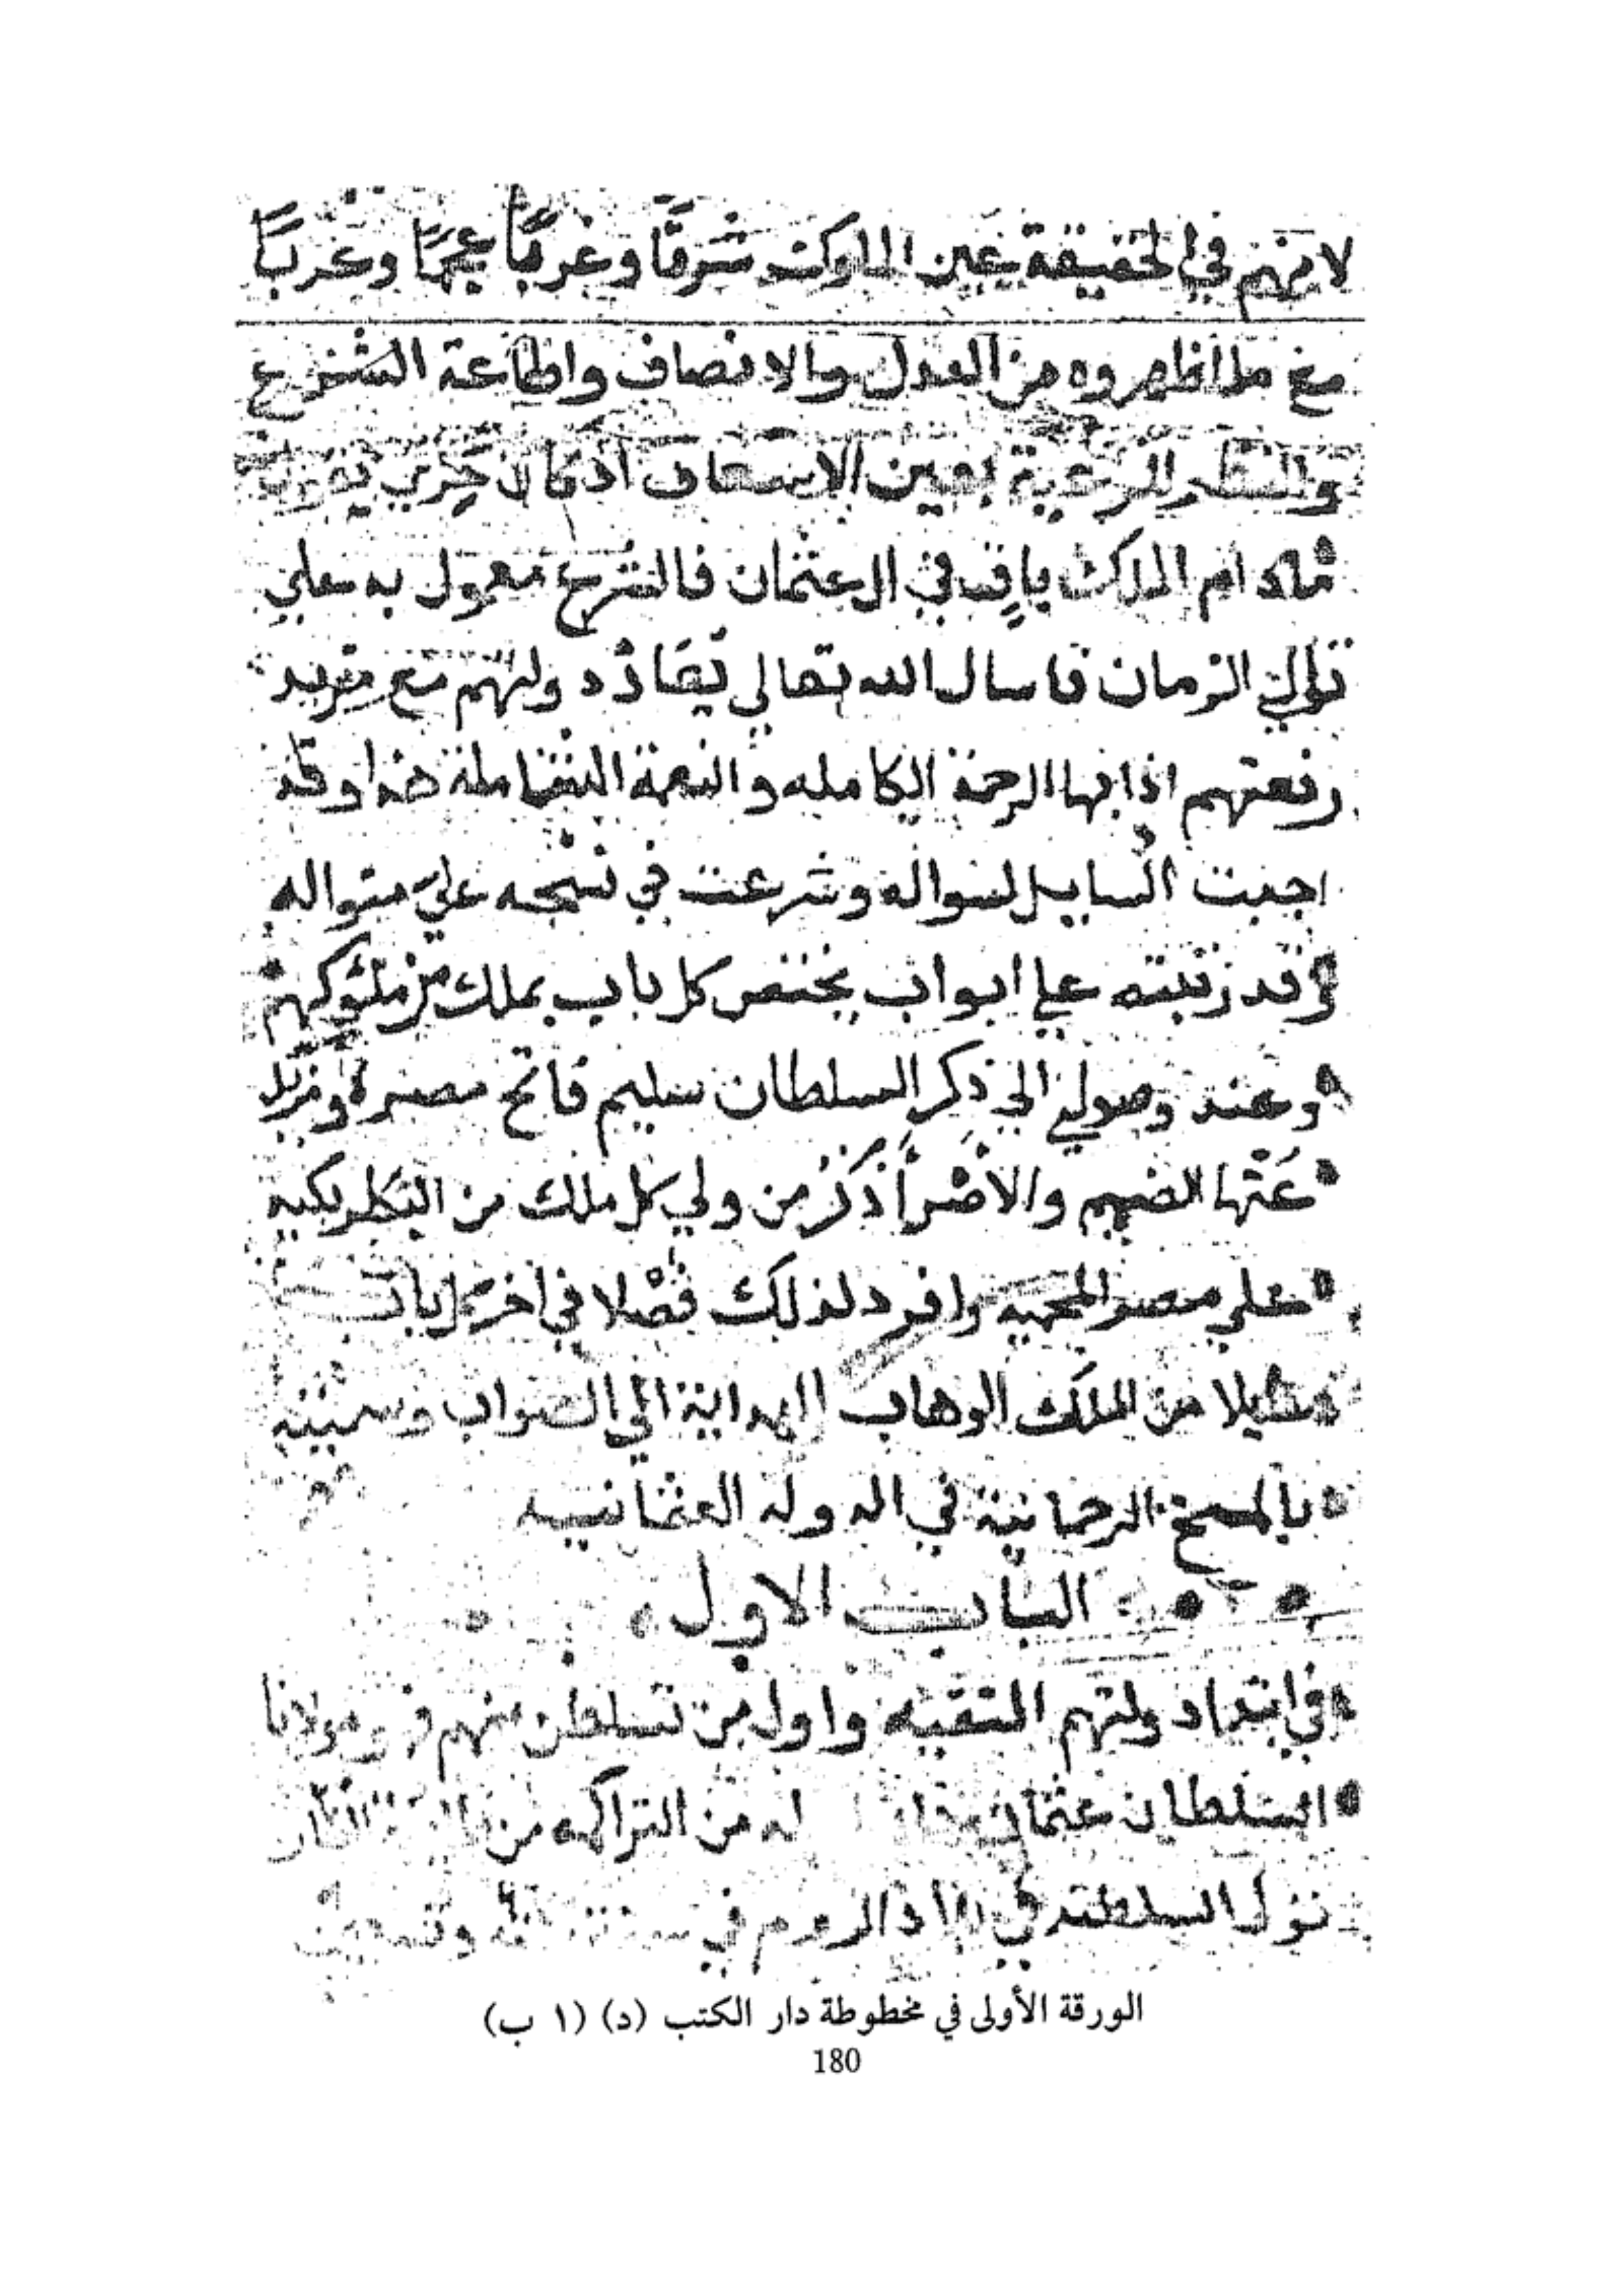 لانهم في الحقيقة عين الملوك شرقًا وغربًا عجمًا وعربًا
مع ما اظهروه من العدل والانصاف واطاعة الشرع
والنظر للرعية بعين الاسعاف اذ كان
مادام الملك باق في ال عثمان فالشرع معمول به علي
توالي الزمان فاسال الله تعالي بقاء دولتهم مع مزيد
رفعتهم اذ انها الرحمة الكامله والنعمة الشاملة هذا وقد
اجبت السايل لسواله وشرعت في نسجه علي منواله
وقد رتبته علي ابواب يختص كل باب بملك من ملوكهم
وعند وصولي الي ذكر السلطان سليم فاتح مصره ومزيل
عنها الضيم والاصر أذكر من ولي كل ملك من البكلربكيه
علي مصر المحميه وافرد لذلك فصلا في اخر كل باب
سايلا من الملك الوهاب الهداية الي الصواب وسميته
بالمنح الرحمانية في الدوله العثمانيه
الباب الاول
في ابتداء دولتهم المتقيه واول من تسلطن منهم مولانا
السلطان عثمان له من التراكمه من التتار
تولي السلطنه في بلاد الروم في سنة وتسعين
الورقة الأولى في مخطوطة دار الكتب (د) (١ ب)
180